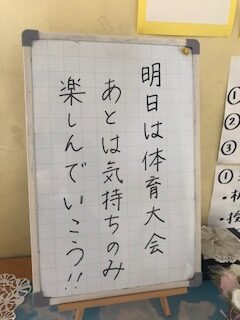 明日は体育大会
あとは気持ちのみ
楽しんでいこう!!
①
②
③
①